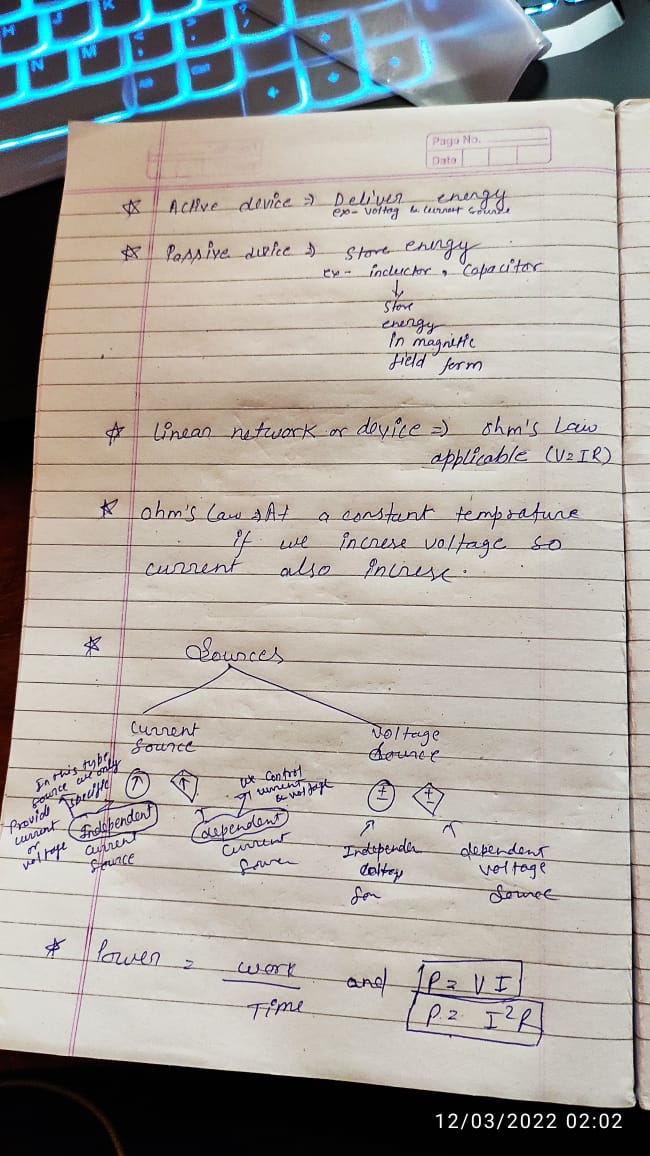 Page No.
Date
☆ Active device ⇒ Deliver energy
ex- voltag & current source
☆ Passive device ⇒ Store energy
ex - inductor, Capacitor
↓
Store
energy
in magnetic
field form
☆ Linear network or device ⇒ ohm's Law
applicable (V=IR)
☆ ohm's Law ⇒ At a constant temprature
if we increse voltage so
current also increse.
☆ Sources
Current
Source
Voltage
Source
In this type
source we only
Provide specific
current
or
voltage
Independent
current
Source
we control
current
or voltage
dependent
current
Sourer
Independen
voltage
Sou
dependent
voltage
Source
☆ Power = work
Time
and P = VI
P = I²R
12/03/2022 02:02